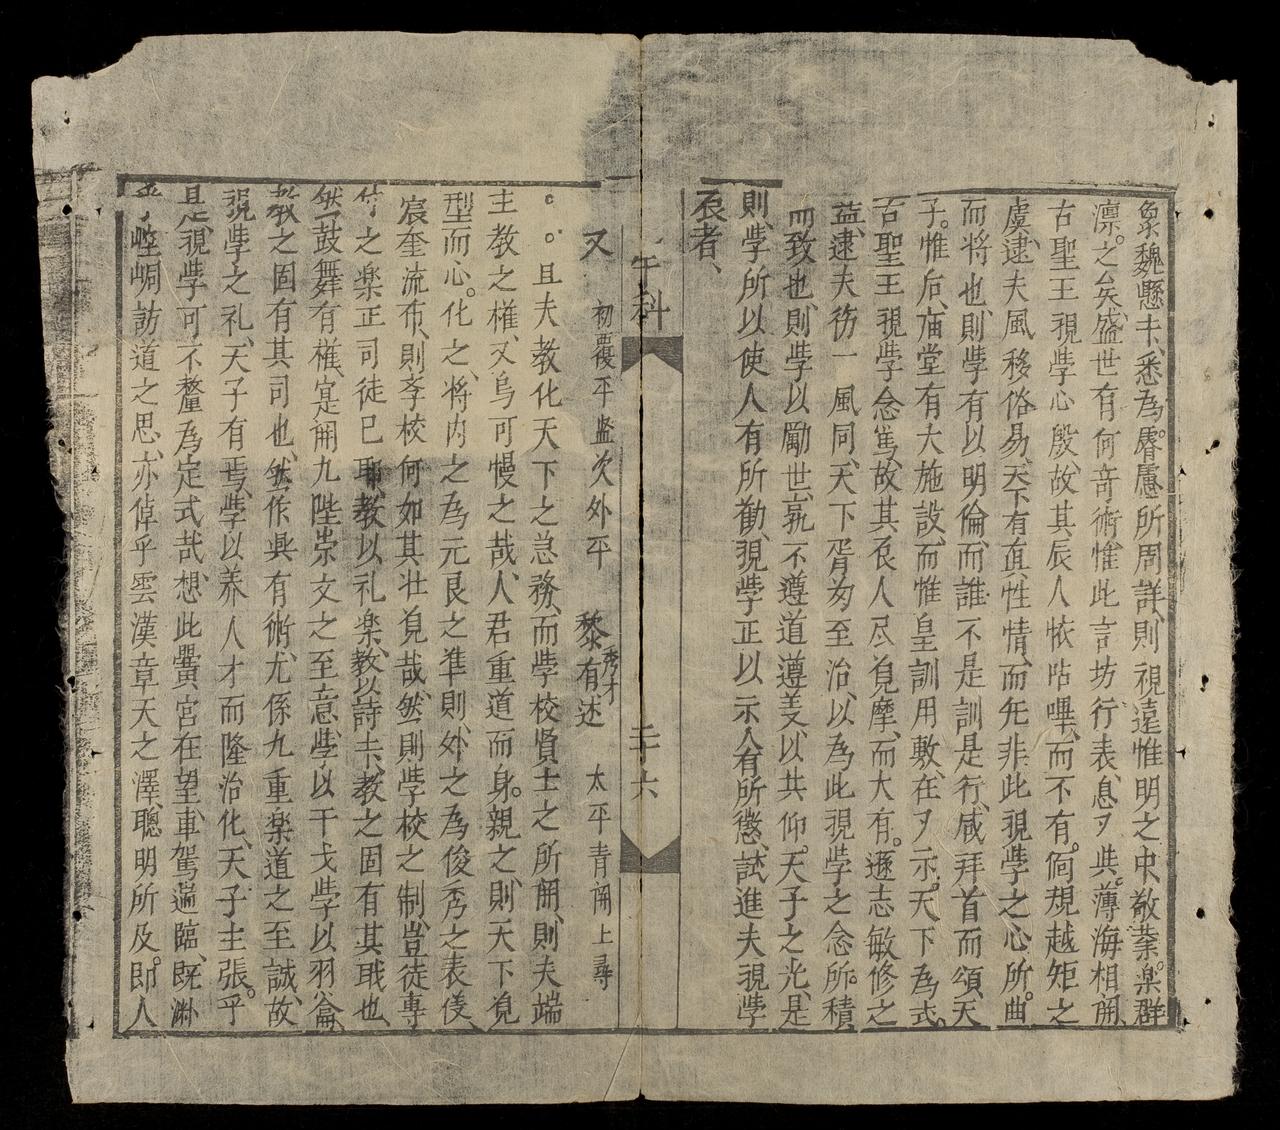 象魏懸卡、悉為。睿慮所周詳、則視遠惟明之中、敬業。楽群
凛。之矣盛世有何竒術、惟此言坊行表、息刃典。薄海相関、
古聖王視學心殷、故其辰人恢呫嗶、而不有。佰規越矩之
虞、逮夫風移俗易、天下有真性情、而兂非此視學之心所。曲
而将也、則學有以明倫、而誰不是訓是行、咸拜首而頌、天
子。惟后、庙堂有大施設、而惟皇訓用敷、在刃示。天下為式。
古聖王視學念篤、故其辰人尽覓摩、而大有。遜志敏修之
益、逮夫彷一風同、天下胥為至治、以為此視學之念所。積
而致也、則學以勵世、孰不遵道遵义、以共仰。天子之光、是
則、學所以使人有所勸、視學正以示人有所懲、試進夫視學
辰者、
午科 二十六
又 初覆平 監次外平 秀才黎有述 太平青関上尋
○○且夫教化天下之急務、而學校賢士之所関、則夫端
主教之權、又烏可慢之哉、人君重道而身。親之、則天下覓
型而心。化之、将内之為元良之準則、外之為俊秀之表儀、
宸奎流布、則斈校何如其壮覓哉、然則學校之制、豈徒専
之楽正司徒已耶、教以礼楽、教以詩卡、教之固有其戢也、
然鼓舞有權、寔開九陛崇文之至意、學以干戈學以羽籥、
教之固有其司也、然作興有術、尤係九重楽道之至誠、故
視學之礼、天子有焉、學以养人才而隆治化、天子主張。乎
是、視學可不釐為定式哉、想此黌宮在望、車駕遄臨、既渊
乎崆峒訪道之思、亦倬乎雲漢章天之澤、聰明所及。即人